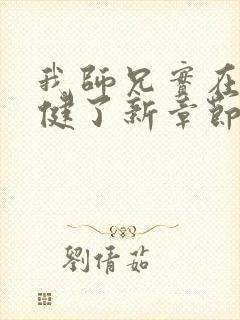 我師兄實在
健了新章節
劉倩茹